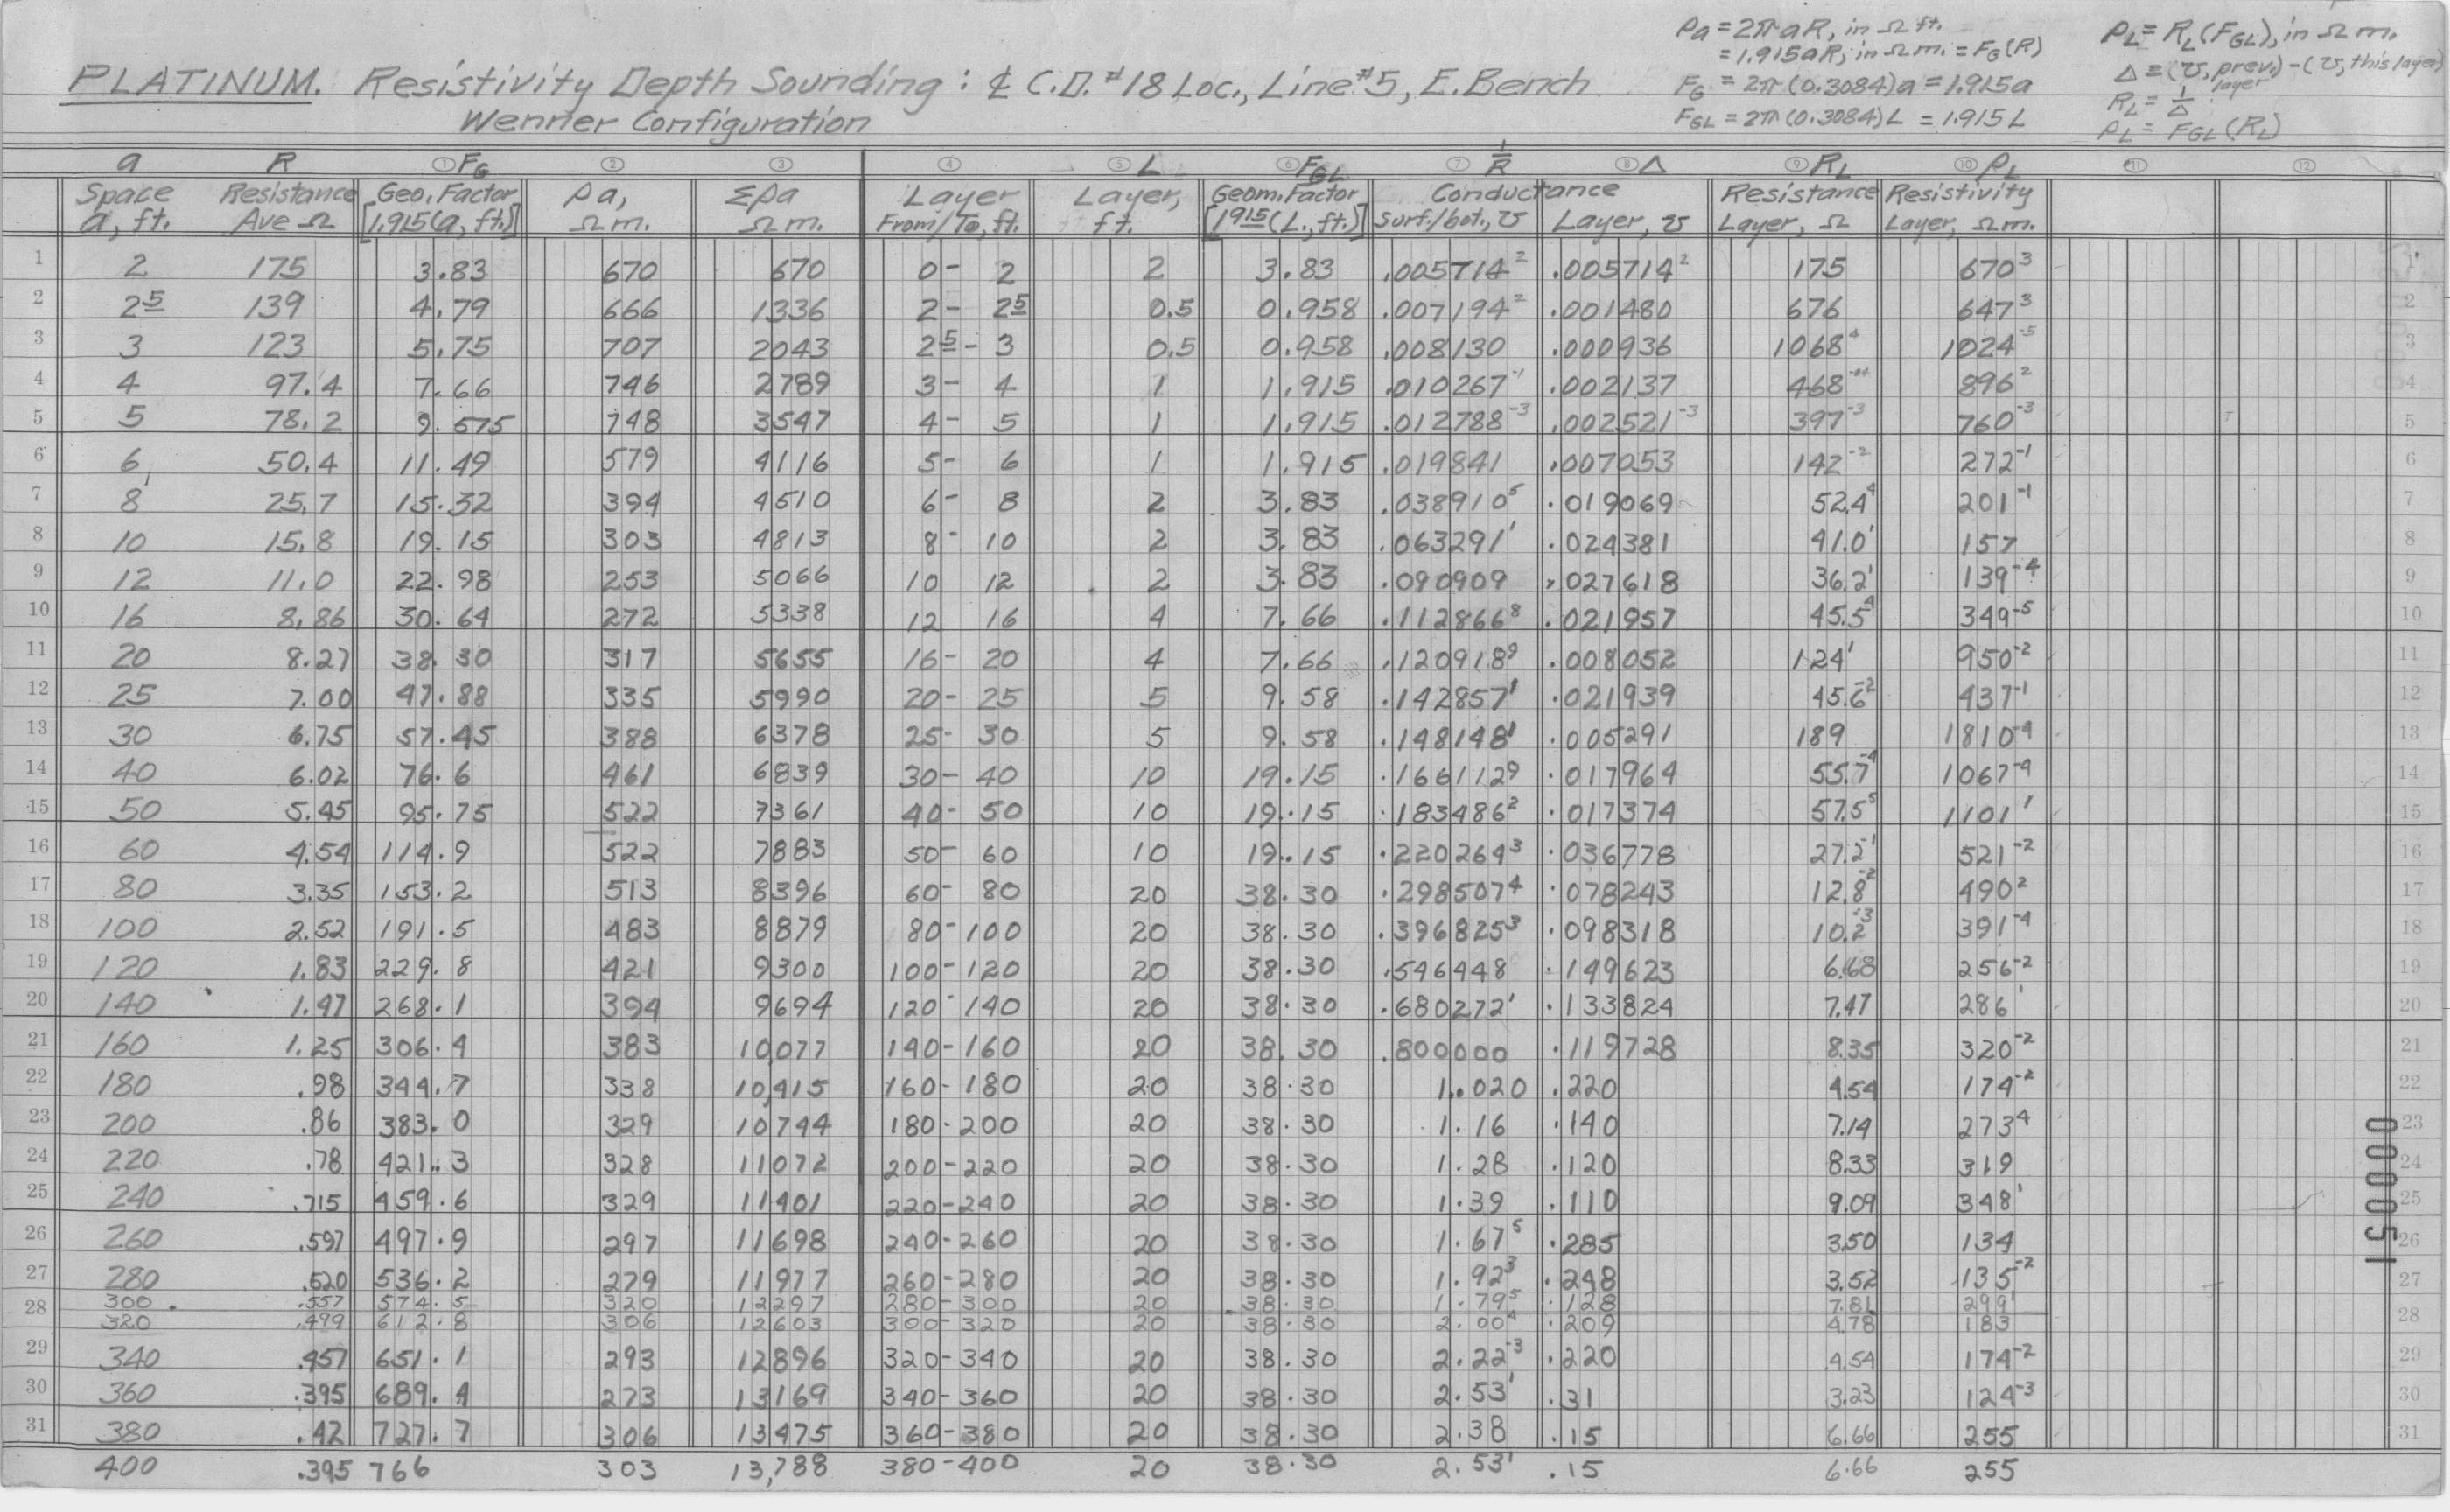 ρa = 2πaR, in Ω ft.
= 1.915aR, in Ω m. = FG(R)
FG = 2π(0.3084)a = 1.915a
FGL = 2π(0.3084)L = 1.915L
ρL = RL(FGL), in Ω m.
Δ = (℧, prev. layer) - (℧, this layer)
RL = 1/Δ
ρL = FGL(RL)
PLATINUM. Resistivity Depth Sounding: ℄ C.D. #18 Loc., Line #5, E. Bench
Wenner Configuration
a R ① FG ② ③ ④ ⑤ L ⑥ FGL ⑦ 1/R ⑧ Δ ⑨ RL ⑩ ρL ⑪ ⑫
Space Resistance Geo. Factor ρa, Σρa Layer Layer, Geom. Factor Conductance Resistance Resistivity
a, ft. Ave Ω [1.915(a, ft.)] Ω m. Ω m. From/To, ft. ft. [1915(L, ft.)] Surf./bot., ℧ Layer, ℧ Layer, Ω Layer, Ω m.
1 2 175 3.83 670 670 0- 2 2 3.83 .005714² .005714² 175 670³ 1
2 2⁵ 139 4.79 666 1336 2- 2⁵ 0.5 0.958 .007194² .001480 676 647³ 2
3 3 123 5.75 707 2043 2⁵- 3 0.5 0.958 .008130 .000936 1068⁴ 1024⁻⁵ 3
4 4 97.4 7.66 746 2789 3- 4 1 1.915 .010267⁻¹ .002137 468 896² 4
5 5 78.2 9.575 748 3547 4- 5 1 1.915 .012788⁻³ .002521⁻³ 397⁻³ 760⁻³ 5
6 6 50.4 11.49 579 4116 5- 6 1 1.915 .019841 .007053 142⁻² 272⁻¹ 6
7 8 25.7 15.32 394 4510 6- 8 2 3.83 .038910⁵ .019069 52.4⁴ 201⁻¹ 7
8 10 15.8 19.15 303 4813 8- 10 2 3.83 .063291¹ .024381 41.0¹ 157 8
9 12 11.0 22.98 253 5066 10 12 2 3.83 .090909 .027618 36.2¹ 139⁻⁴ 9
10 16 8.86 30.64 272 5338 12 16 4 7.66 .112866⁸ .021957 45.5⁴ 349⁻⁵ 10
11 20 8.27 38.30 317 5655 16- 20 4 7.66 .120918⁹ .008052 124¹ 950⁻² 11
12 25 7.00 47.88 335 5990 20- 25 5 9.58 .142857¹ .021939 45.6⁻² 437⁻¹ 12
13 30 6.75 57.45 388 6378 25- 30 5 9.58 .148148¹ .005291 189 1810⁻⁴ 13
14 40 6.02 76.6 461 6839 30- 40 10 19.15 .166112⁹ .017964 55.7⁻⁴ 1067⁻⁴ 14
15 50 5.45 95.75 522 7361 40- 50 10 19.15 .183486² .017374 57.5⁵ 1101¹ 15
16 60 4.54 114.9 522 7883 50- 60 10 19.15 .220264³ .036778 27.2⁻¹ 521⁻² 16
17 80 3.35 153.2 513 8396 60- 80 20 38.30 .298507⁴ .078243 12.8⁻² 490² 17
18 100 2.52 191.5 483 8879 80-100 20 38.30 .396825³ .098318 10.2⁻³ 391⁻⁴ 18
19 120 1.83 229.8 421 9300 100-120 20 38.30 .546448 .149623 6.68 256⁻² 19
20 140 1.47 268.1 394 9694 120-140 20 38.30 .680272¹ .133824 7.47 286¹ 20
21 160 1.25 306.4 383 10,077 140-160 20 38.30 .800000 .119728 8.35 320⁻² 21
22 180 .98 344.7 338 10,415 160-180 20 38.30 1.020 .220 4.54 174⁻² 22
23 200 .86 383.0 329 10744 180-200 20 38.30 1.16 .140 7.14 273⁴ 23
24 220 .78 421.3 328 11072 200-220 20 38.30 1.28 .120 8.33 319 24
25 240 .715 459.6 329 11401 220-240 20 38.30 1.39 .110 9.09 348¹ 25
26 260 .597 497.9 297 11698 240-260 20 38.30 1.67⁵ .285 3.50 134 26
27 280 .520 536.2 279 11977 260-280 20 38.30 1.92³ .248 3.52 135⁻² 27
28 300 .557 574.5 320 12297 280-300 20 38.30 1.79⁵ .128 7.81 299¹ 28
320 .499 612.8 306 12603 300-320 20 38.30 2.00⁴ .209 4.78 183
29 340 .457 651.1 293 12896 320-340 20 38.30 2.22⁻³ .220 4.54 174⁻² 29
30 360 .395 689.4 273 13169 340-360 20 38.30 2.53¹ .31 3.23 124⁻³ 30
31 380 .42 727.7 306 13475 360-380 20 38.30 2.38 .15 6.66 255 31
400 .395 766 303 13,788 380-400 20 38.30 2.53¹ .15 6.66 255
150000